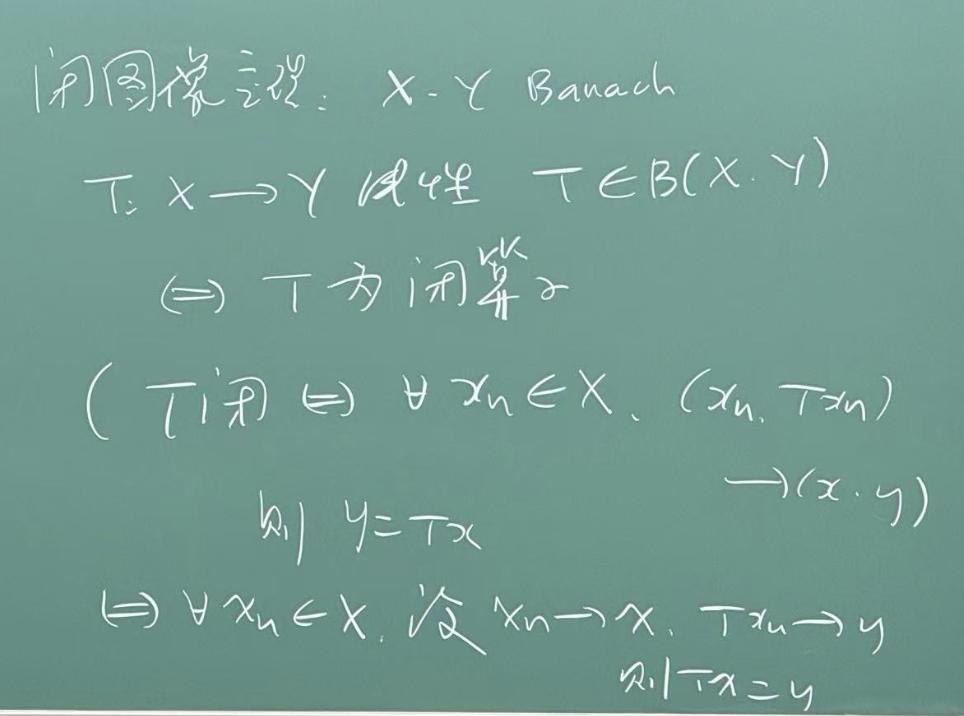 闭图像定理: X, Y Banach
T: X → Y 线性 T ∈ B(X, Y)
⇔ T 为闭算子
( T闭 ⇔ ∀ xₙ ∈ X, (xₙ, Txₙ)
→ (x, y)
则 y = Tx
⇔ ∀ xₙ ∈ X, 设 xₙ → x, Txₙ → y
则 Tx = y